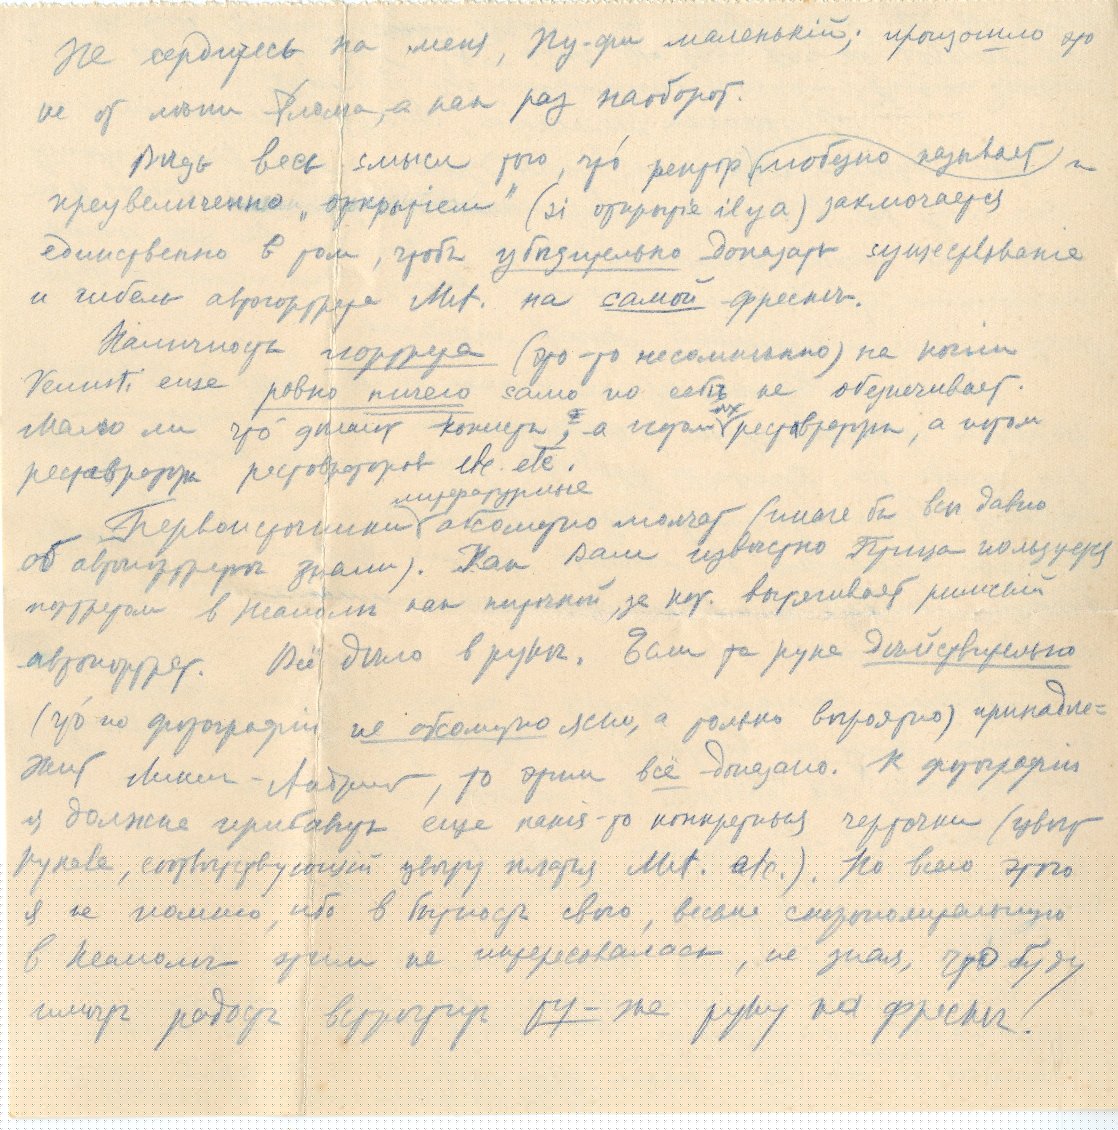 Не сердитесь на меня, Пу-фи маленькiй; произошло это
не от лѣни Флама, а как раз наоборот.
Вѣдь весь смысл того, чтó ректор (любезно называет) и
преувеличенно „открытiем" (si открытiе il y a) заключается
единственно в том, чтобы убѣдительно доказать существованiе
и гибель автопортрета Mel. на самой фрескѣ.
Наличность портрета (это-то несомнѣнно) на копiи
еще ровно ничего само по себѣ не обезпечивает.
Мало ли чтó дѣлают кописты, а потом их реставраторы, а потом
реставраторы реставраторов etc. etc.
Первоисточники литературные абсолютно молчат (иначе бы всѣ давно
об автопортретѣ знали). Как Вам извѣстно Птица пользуется
портретом в Неаполѣ как ниточкой, за кот. вытягивает римскiй
автопортрет. Всё дѣло в рукѣ. Если та рука дѣйствительно
(чтó по фотографiи не абсолютно ясно, а только вѣроятно) принадле=
жит , то этим всё доказано. К фотографiи
я должна прибавить еще какiя-то конкретныя черточки (цвѣт
рукава, соотвѣтствующiй цвѣту платья Mel. etc.). Но всего этого
я не помню, ибо в бытность свою, весьма скоропалительную
в Неаполѣ этим не интересовалась, не зная, что буду
имѣть радость встрѣтить ту-же руку на фрескѣ!